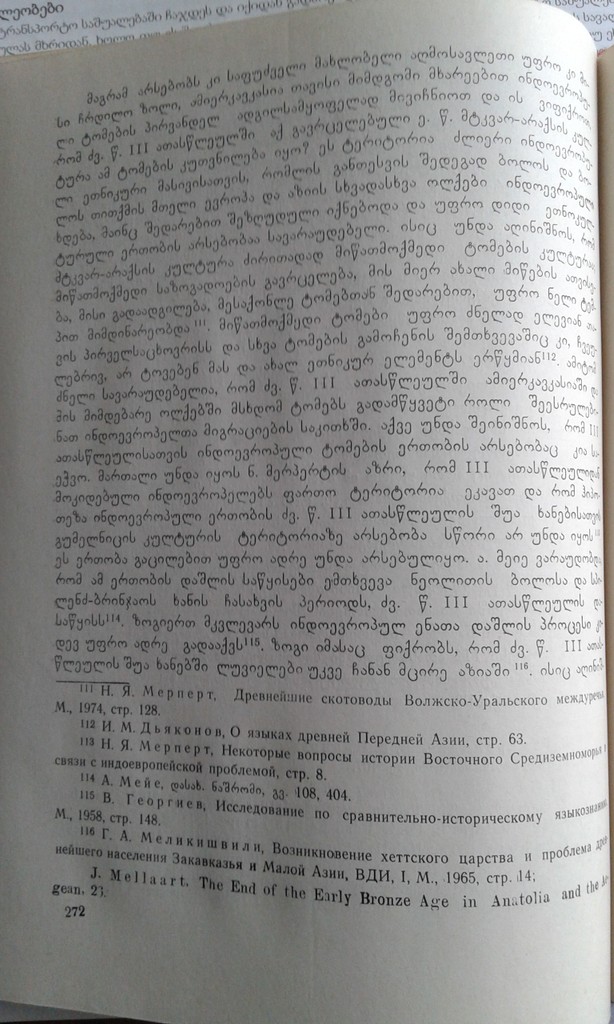 ლეობები
ტრანსპორტო საშუალებაში ჩაჯდეს და იქიდან
მაგრამ არსებობს კი საფუძველი მახლობელი აღმოსავლეთი უფრო კი მი-
სი ჩრდილო ზოლი, ამიერკავკასია თავისი მიმდგომი მხარეებით ინდოევროპუ-
ლი ტომების პირვანდელ ადგილსამყოფელად მივიჩნიოთ და ის ვიფიქროთ,
რომ ძვ. წ. III ათასწლეულში აქ გავრცელებული ე. წ. მტკვარ-არაქსის კულ-
ტურა ამ ტომების კუთვნილება იყო? ეს ტერიტორია ძლიერი ინდოევროპუ-
ლი ეთნიკური მასივისათვის, რომლის განთესვის შედეგად ბოლოს და ბო-
ლოს თითქმის მთელი ევროპა და აზიის სხვადასხვა ოლქები ინდოევროპული
ხდება, მაინც შედარებით შეზღუდული იქნებოდა და უფრო დიდი ეთნოკულ-
ტურული ერთობის არსებობაა სავარაუდებელი. ისიც უნდა აღინიშნოს, რომ
მტკვარ-არაქსის კულტურა ძირითადად მიწათმოქმედი ტომების კულტურაა
მიწათმოქმედი საზოგადოების გავრცელება, მის მიერ ახალი მიწების ათვისე-
ბა, მისი გადაადგილება, მესაქონლე ტომებთან შედარებით, უფრო ნელი ტემ-
პით მიმდინარეობდა 111. მიწათმოქმედი ტომები უფრო ძნელად ელევიან თა-
ვის პირველსაცხოვრისს და სხვა ტომების გამოჩენის შემთხვევაშიც კი, ჩვეუ-
ლებრივ, არ ტოვებენ მას და ახალ ეთნიკურ ელემენტს ერწყმიან112. ამიტომ
ძნელი სავარაუდებელია, რომ ძვ. წ. III ათასწლეულში ამიერკავკასიაში და
მის მიმდებარე ოლქებში მსხდომ ტომებს გადამწყვეტი როლი შეესრულები-
ნათ ინდოევროპელთა მიგრაციების საკითხში. აქვე უნდა შეინიშნოს, რომ III
ათასწლეულისათვის ინდოევროპული ტომების ერთობის არსებობაც კია სა-
ეჭვო. მართალი უნდა იყოს ნ. მერპერტის აზრი, რომ III ათასწლეულიდან
მოკიდებული ინდოევროპელებს ფართო ტერიტორია ეკავათ და რომ ჰიპო-
თეზა ინდოევროპული ერთობის ძვ. წ. III ათასწლეულის შუა ხანებისათვის
გუმელნიცის კულტურის ტერიტორიაზე არსებობა სწორი არ უნდა იყოს113
ეს ერთობა გაცილებით უფრო ადრე უნდა არსებულიყო. ა. მეიე ვარაუდობდა
რომ ამ ერთობის დაშლის საწყისები ემთხვევა ნეოლითის ბოლოსა და სპი-
ლენძ-ბრინჯაოს ხანის ჩასახვის პერიოდს, ძვ. წ. III ათასწლეულის და-
საწყისს114. ზოგიერთ მკვლევარს ინდოევროპულ ენათა დაშლის პროცესი კი-
დევ უფრო ადრე გადააქვს115. ზოგი იმასაც ფიქრობს, რომ ძვ. წ. III ათას-
წლეულის შუა ხანებში ლუვიელები უკვე ჩანან მცირე აზიაში 116. ისიც აღინიშ-
111 Н. Я. Мерперт, Древнейшие скотоводы Волжско-Уральского междуречья
М., 1974, стр. 128.
112 И. М. Дьяконов, О языках древней Передней Азии, стр. 63.
113 Н. Я. Мерперт, Некоторые вопросы истории Восточного Средиземноморья в
связи с индоевропейской проблемой, стр. 8.
114 А. Мейе, დასახ. ნაშრომი, გვ. 108, 404.
115 В. Георгиев, Исследование по сравнительно-историческому языкознанию
М., 1958, стр. 148.
116 Г. А. Меликишвили, Возникновение хеттского царства и проблема древ-
нейшего населения Закавказья и Малой Азии, ВДИ, I, М., 1965, стр. 14;
J. Mellaart. The End of the Early Bronze Age in Anatolia and the Ae-
gean, 23.
272